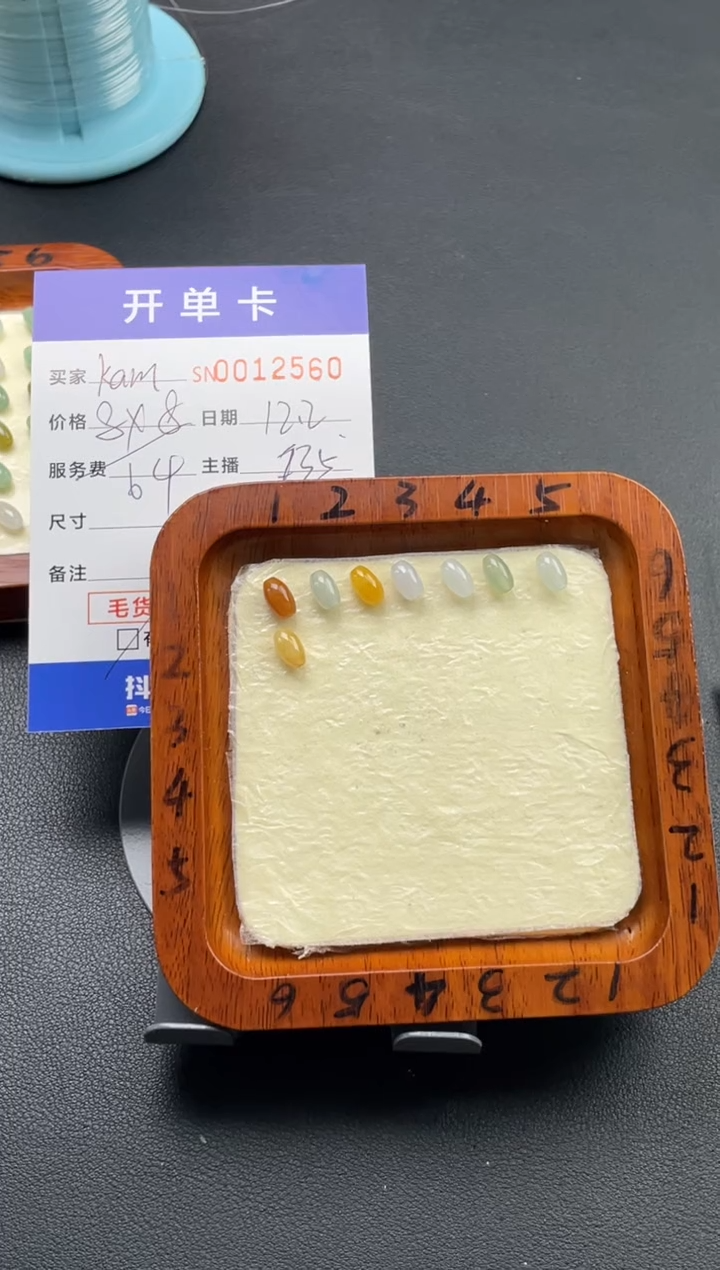 开单卡
买家 kam SN0012560
价格 8x8 日期 12.2
服务费 64 主播 135
尺寸
备注
毛货
抖
今日
1 2 3 4 5
6 5 4 3 2 1
2 3 4 5
6 5 4 3 2 1